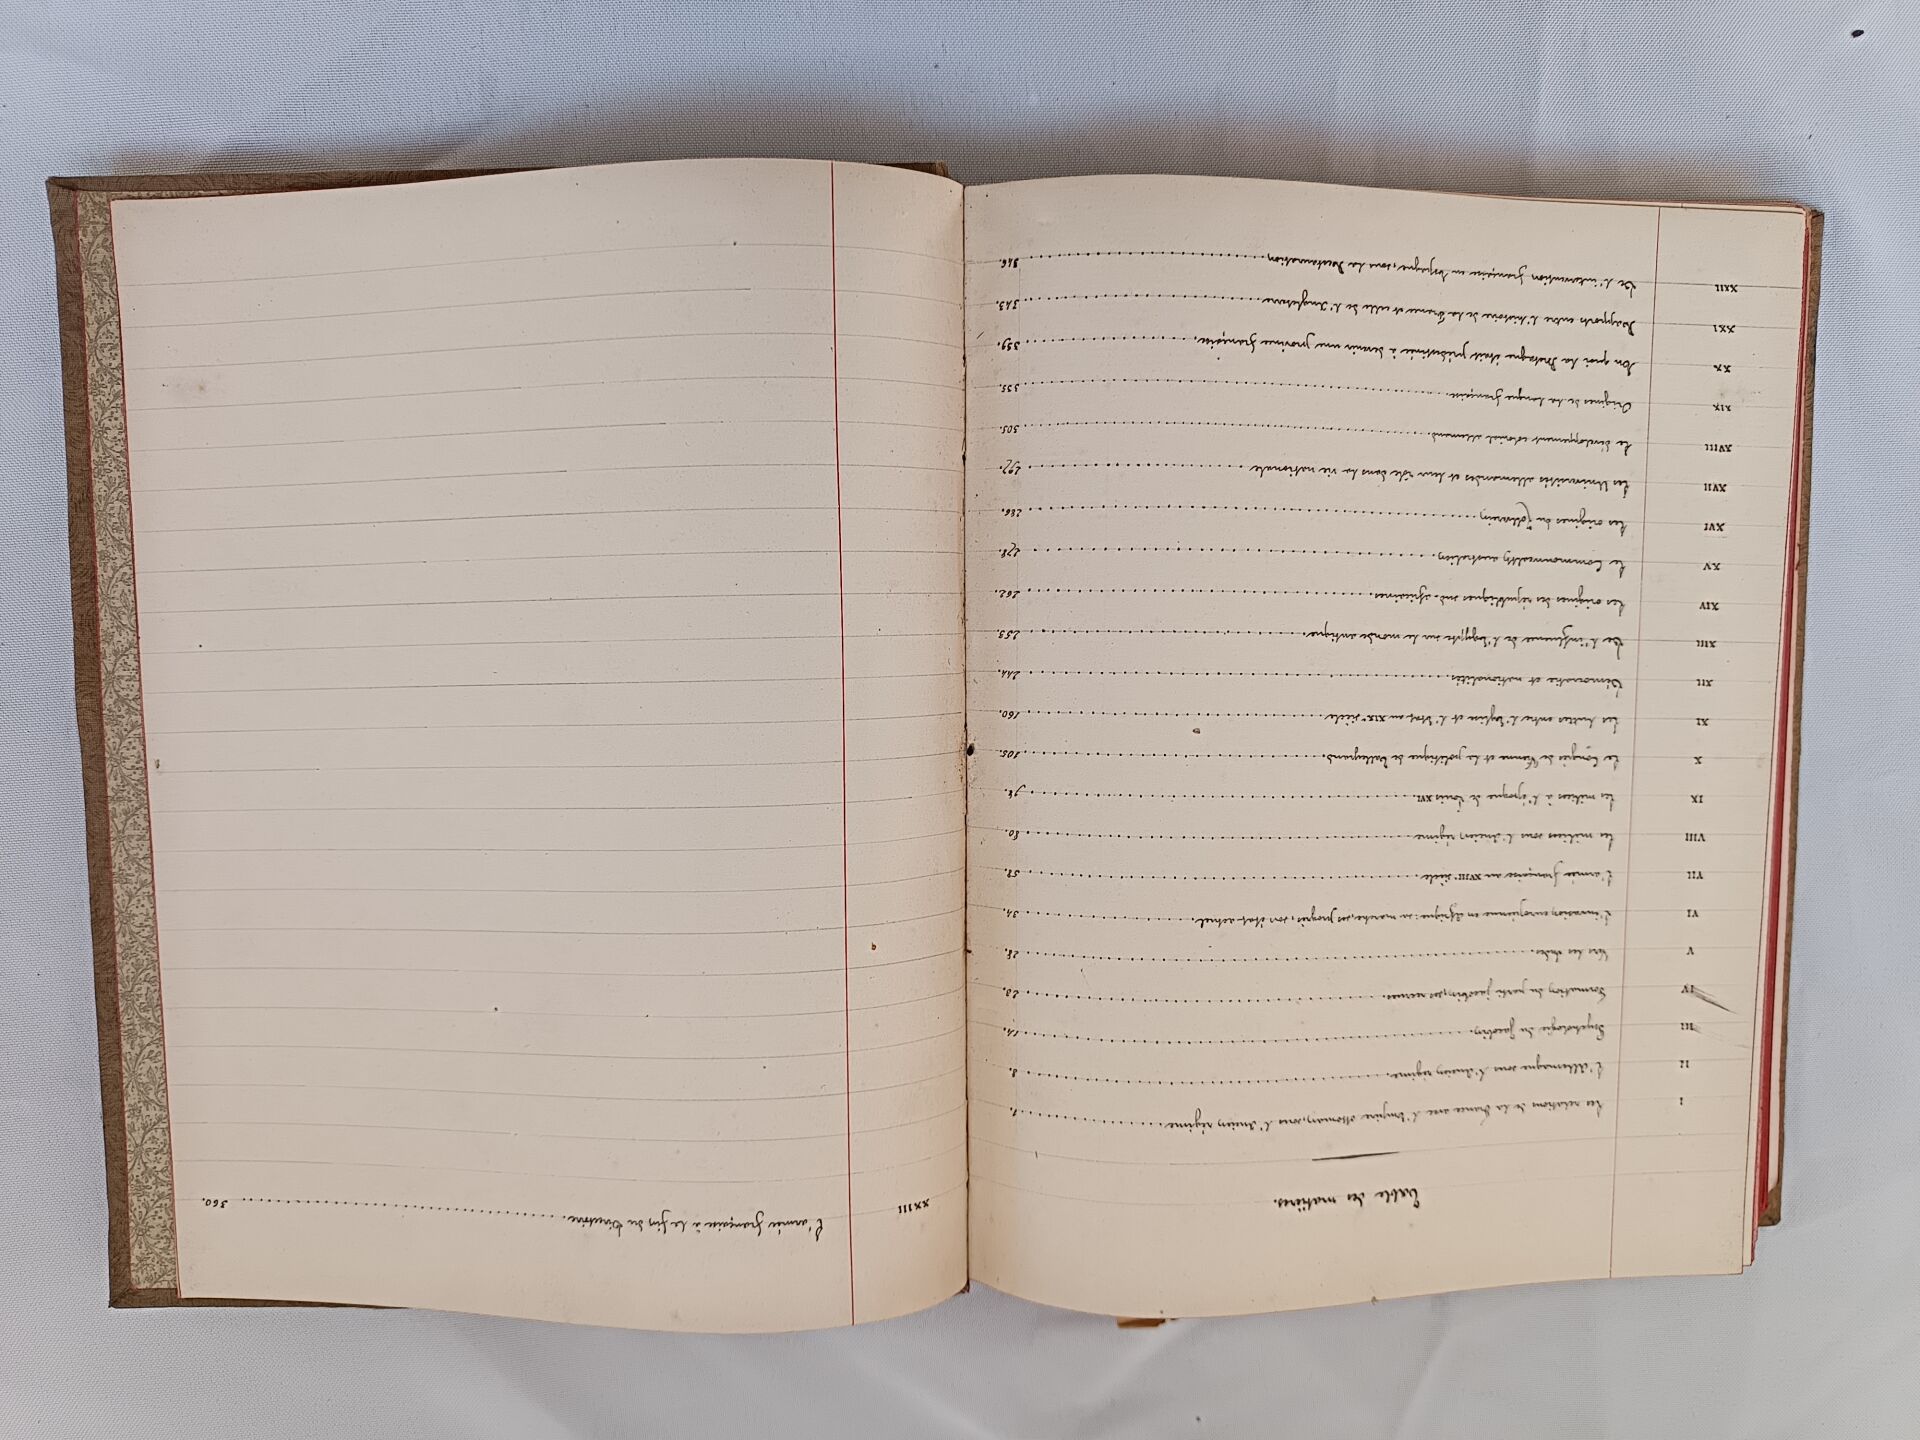 Table des matières.
I Les relations de la France avec l'Empire ottoman, sous l'Ancien régime. 1.
II L'Allemagne sous l'Ancien régime. 8.
III Psychologie du Jacobin. 14.
IV Formation du parti jacobin, ses recrues. 23.
V Vers les Indes. 28.
VI L'invasion européenne en Afrique: sa marche, ses progrès, son état actuel. 34.
VII L'armée française au XVIIIe siècle. 52.
VIII Les milices sous l'Ancien régime 80.
IX Les milices à l'époque de Louis XVI. 98.
X Le Congrès de Vienne et la politique de Talleyrand. 105.
XI Les luttes entre l'Eglise et l'Etat au XIXe siècle 160.
XII Démocratie et nationalités. 244.
XIII De l'influence de l'Egypte sur le monde antique. 255.
XIV Les origines des républiques sud-africaines. 262.
XV Le Commonwealth australien. 278.
XVI Les origines du Zollverein 286.
XVII Les Universités allemandes et leur rôle dans la vie nationale 297.
XVIII Le développement colonial allemand. 305.
XIX Origines de la langue française. 335.
XX En quoi la Bretagne était prédestinée à devenir une province française. 339.
XXI Rapports entre l'histoire de la France et celle de l'Angleterre 343.
XXII De l'intervention française en Espagne, sous la Restauration 346.
XXIII L'armée française à la fin du Directoire. 360.